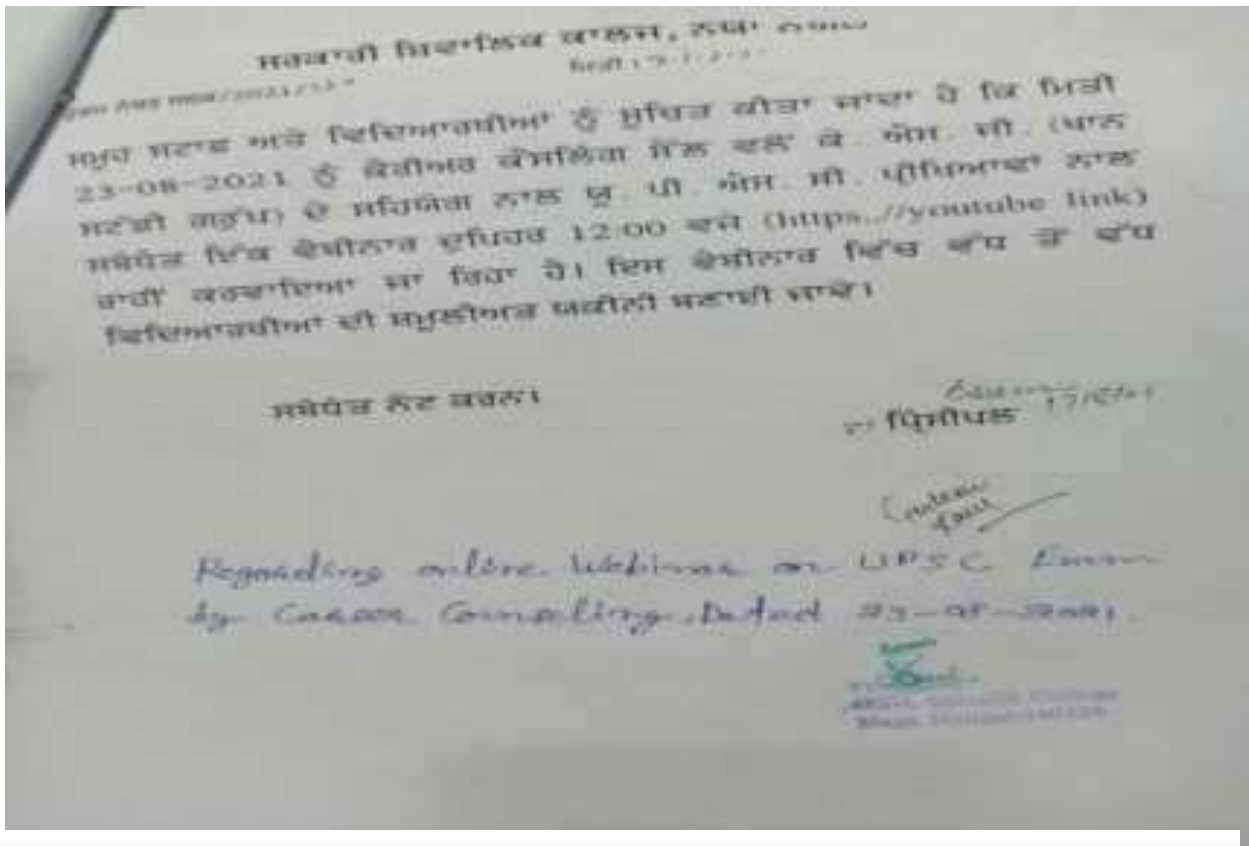 ਸਰਕਾਰੀ ਸ਼ਿਵਾਲਿਕ ਕਾਲਜ, ਨਯਾ
ਸਮੂਹ ਸਟਾਫ ਅਤੇ ਵਿਦਿਆਰਥੀਆਂ ਨੂੰ ਸੂਚਿਤ ਕੀਤਾ ਜਾਂਦਾ ਹੈ ਕਿ ਮਿਤੀ
23-08-2021 ਨੂੰ ਕੈਰੀਅਰ ਕੌਂਸਲਿੰਗ ਸੈੱਲ ਵਲੋਂ ਕੇ. ਐਸ. ਸੀ. (ਖਾਨ
ਸਟੱਡੀ ਗਰੁੱਪ) ਦੇ ਸਹਿਯੋਗ ਨਾਲ ਯੂ. ਪੀ. ਐਸ. ਸੀ. ਪ੍ਰੀਖਿਆਵਾਂ ਨਾਲ
ਸਬੰਧਤ ਇੱਕ ਵੈਬੀਨਾਰ ਦੁਪਿਹਰ 12:00 ਵਜੇ (https..//youtube link)
ਰਾਹੀਂ ਕਰਵਾਇਆ ਜਾ ਰਿਹਾ ਹੈ। ਇਸ ਵੈਬੀਨਾਰ ਵਿੱਚ ਵੱਧ ਤੋਂ ਵੱਧ
ਵਿਦਿਆਰਥੀਆਂ ਦੀ ਸਮੂਲੀਅਤ ਯਕੀਨੀ ਬਣਾਈ ਜਾਵੇ।
ਸਬੰਧਤ ਨੋਟ ਕਰਨ।
ਪ੍ਰਿੰਸੀਪਲ
Regarding online Webinar on UPSC Exam
by Career Counseling, Dated 23-08-2021.